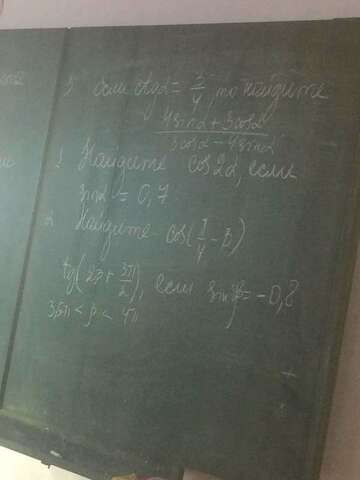 3 если ctgα = 3/4, то найдите
(4sinα + 3cosα)/(3cosα - 4sinα)
1 Найдите cos2α, если
sinα = 0,7
2 Найдите cos(π/4 - β)
tg(2β + 3π/2), если sinβ = -0,8
3,5π < β < 4π